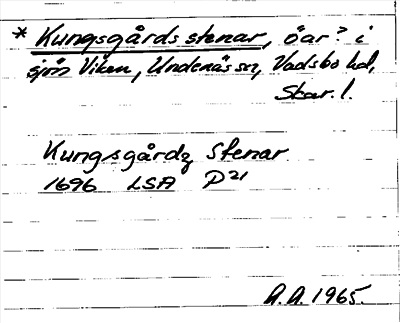 * Kungsgårds stenar, öar? i
sjön Viken, Undenäs sn, Vadsbo hd,
Skar. l.
Kungsgårdz Stenar
1696 LSA P²¹
A.A. 1965.